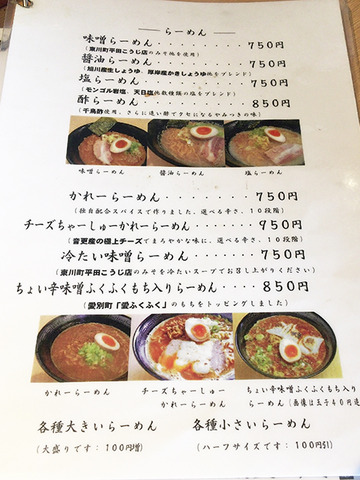 らーめん
味噌らーめん・・・・・・・・・750円
(東川町平田こうじ店のみそ他を使用)
醤油らーめん・・・・・・・・・750円
(旭川産生しょうゆ、厚岸産かきしょうゆ他をブレンド)
塩らーめん・・・・・・・・・・750円
(モンゴル岩塩、天日塩他数種類の塩をブレンド)
酢らーめん・・・・・・・・・・850円
(千鳥酢使用、さらに追い酢でクセになるやみつきの味)
味噌らーめん 醤油らーめん 塩らーめん
かれーらーめん・・・・・・・750円
(独自配合スパイスで作りました、選べる辛さ、10段階)
チーズちゃーしゅーかれーらーめん・・・950円
(音更産の極上チーズでまろやかな味に、選べる辛さ、10段階)
冷たい味噌らーめん・・・・・750円
(東川町平田こうじ店のみそを冷たいスープでお召し上がりください)
ちょい辛味噌ふくふくもち入りらーめん・・850円
(愛別町「愛ふくふく」のもちをトッピングしました)
かれーらーめん チーズちゃーしゅー ちょい辛味噌ふくふくもち入り
かれーらーめん らーめん(画像は玉子40円
各種大きいらーめん 各種小さいらーめん
(大盛りです:100円増) (ハーフサイズです:100円引)